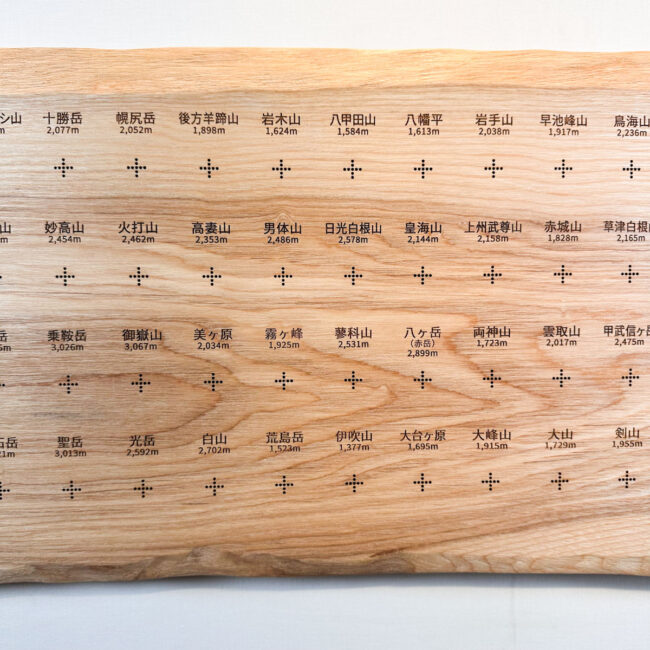 シ山 十勝岳 幌尻岳 後方羊蹄山 岩木山 八甲田山 八幡平 岩手山 早池峰山 鳥海山
m 2,077m 2,052m 1,898m 1,624m 1,584m 1,613m 2,038m 1,917m 2,236m
山 妙高山 火打山 高妻山 男体山 日光白根山 皇海山 上州武尊山 赤城山 草津白根山
m 2,454m 2,462m 2,353m 2,486m 2,578m 2,144m 2,158m 1,828m 2,165m
岳 乗鞍岳 御嶽山 美ヶ原 霧ヶ峰 蓼科山 八ヶ岳 両神山 雲取山 甲武信ヶ岳
m 3,026m 3,067m 2,034m 1,925m 2,531m (赤岳) 1,723m 2,017m 2,475m
2,899m
岳 聖岳 光岳 白山 荒島岳 伊吹山 大台ヶ原 大峰山 大山 剣山
21m 3,013m 2,592m 2,702m 1,523m 1,377m 1,695m 1,915m 1,729m 1,955m